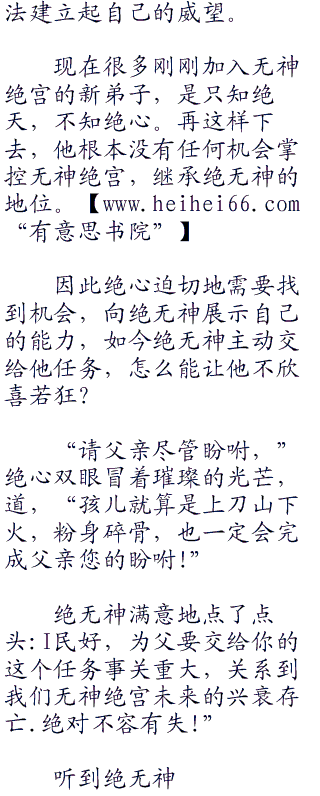 法建立起自己的威望。
现在很多刚刚加入无神
绝宫的新弟子，是只知绝
天，不知绝心。再这样下
去，他根本没有任何机会掌
控无神绝宫，继承绝无神的
地位。【www.heihei66.com
“有意思书院”】
因此绝心迫切地需要找
到机会，向绝无神展示自己
的能力，如今绝无神主动交
给他任务，怎么能让他不欣
喜若狂？
“请父亲尽管盼咐，”
绝心双眼冒着璀璨的光芒，
道，“孩儿就算是上刀山下
火，粉身碎骨，也一定会完
成父亲您的盼咐!”
绝无神满意地点了点
头:I民好，为父要交给你的
这个任务事关重大，关系到
我们无神绝宫未来的兴衰存
亡.绝对不容有失!”
听到绝无神